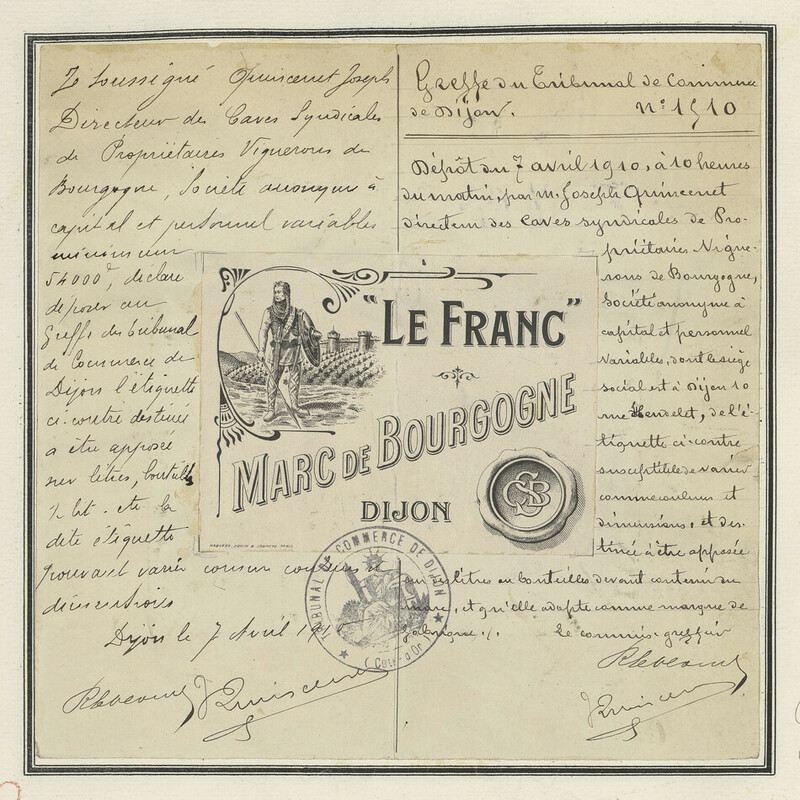 Je Soussigné Quincenet Joseph
Directeur des Caves Syndicales
de Propriétaires Vignerons de
Bourgogne, Société anonyme à
capital et personnel variables
minimum
54000f, déclare
déposer au
Greffe du tribunal
de Commerce de
Dijon l'étiquette
ci-contre destinée
a être apposée
sur litres, bouteilles
½ lit. etc la
dite étiquette
pouvant varier comme couleurs et
dimensions
Dijon le 7 Avril 1910
Greffe du Tribunal de Commerce
de Dijon. n° 1910
Dépôt du 7 avril 1910, à 10 heures
du matin, par M. Joseph Quincenet
directeur des caves syndicales de Pro-
priétaires Vigne-
rons de Bourgogne,
Société anonyme à
capital et personnel
variables, dont le siège
social est à Dijon 10
rue de l'é-
tiquette ci-contre
susceptible de varier
comme couleurs et
dimensions, et des-
tinée à être apposée
sur litres ou bouteilles devant contenir du
marc, et qu'elle adopte comme marque de
fabrique ./. Le commis-greffier
"LE FRANC"
MARC DE BOURGOGNE
DIJON
CSB
TRIBUNAL DE COMMERCE DE DIJON
(Côte-d'Or)